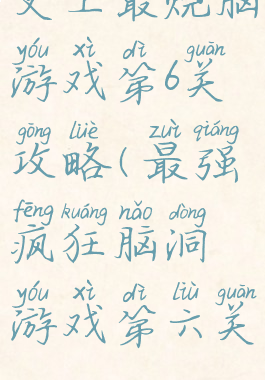 史上最烧脑
yóu xì dì guān
游戏第6关
gōng lüè zuì qiáng
攻略(最强
fēng kuáng nǎo dòng
疯狂脑洞
yóu xì dì liù guān
游戏第六关